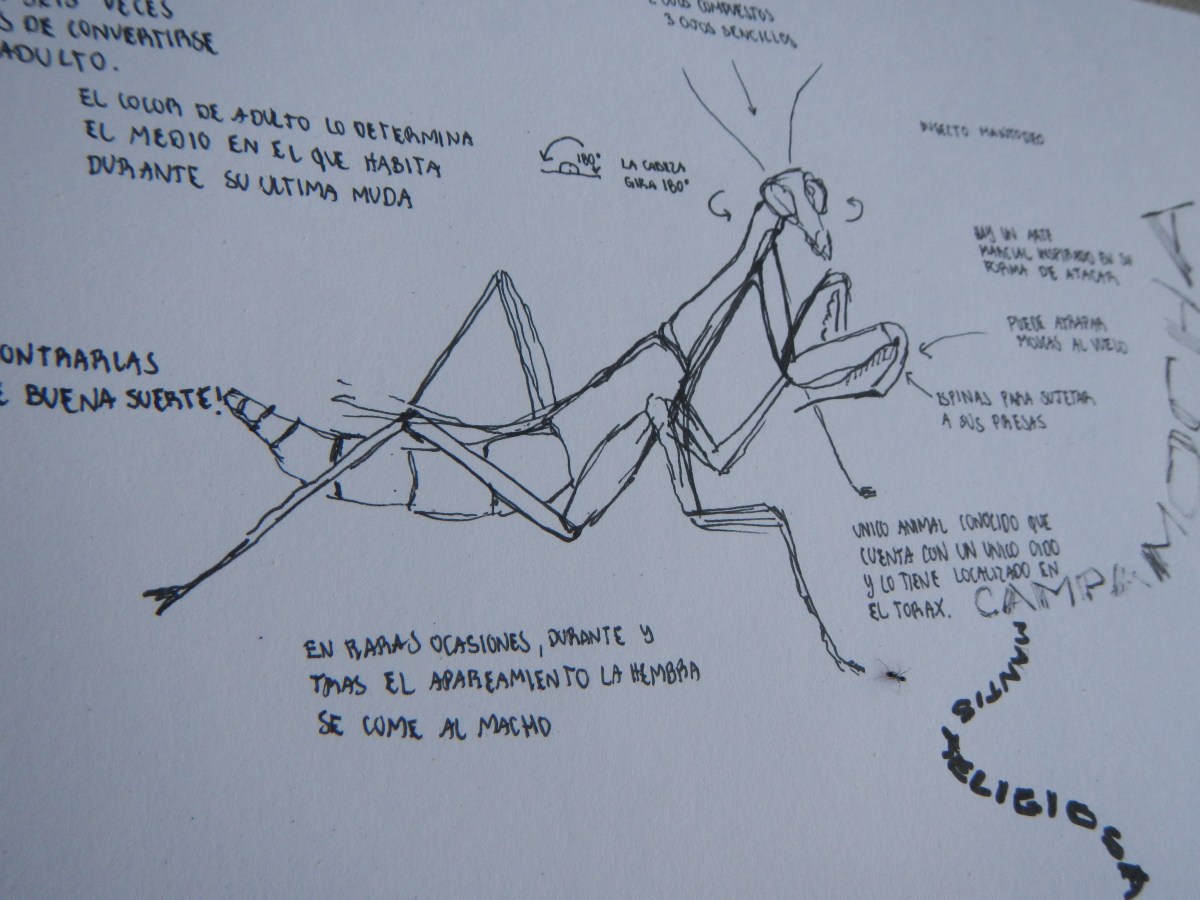 SEIS VECES
S DE CONVERTIRSE
ADULTO.
2 OJOS COMPUESTOS
3 OJOS SENCILLOS
EL COLOR DE ADULTO LO DETERMINA
EL MEDIO EN EL QUE HABITA
DURANTE SU ULTIMA MUDA
180°
LA CABEZA
GIRA 180°
INSECTO MANTODEO
HAY UN ARTE
MARCIAL INSPIRADO EN SU
FORMA DE ATACAR
PUEDE ATRAPAR
MOSCAS AL VUELO
ONTRARLAS
E BUENA SUERTE!
ESPINAS PARA SUJETAR
A SUS PRESAS
UNICO ANIMAL CONOCIDO QUE
CUENTA CON UN UNICO OIDO
Y LO TIENE LOCALIZADO EN
EL TORAX.
CAMPAMOCHA
MANTIS RELIGIOSA
EN RARAS OCASIONES, DURANTE Y
TRAS EL APAREAMIENTO LA HEMBRA
SE COME AL MACHO